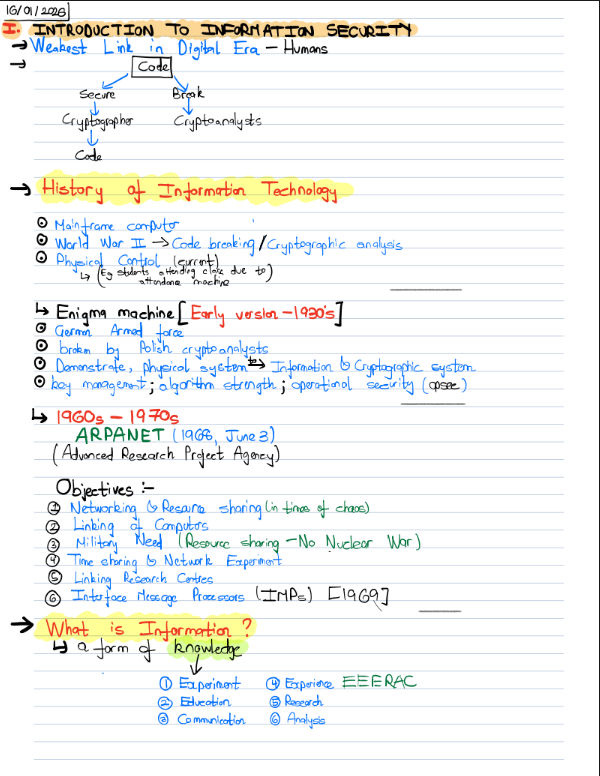 16/01/2026
I. INTRODUCTION TO INFORMATION SECURITY
→ Weakest Link in Digital Era — Humans
→ Code
Secure Break
Cryptographer Cryptoanalysts
Code
→ History of Information Technology
Mainframe computor
World War II → Code breaking / Cryptographic analysis
Physical Control (current)
↳ (Eg students attending class due to)
attendance machine
↳ Enigma machine [Early version – 1920's]
German Armed force
broken by Polish cryptoanalysts
Demonstrate, physical system → Information & Cryptographic system
key management; algorithm strength; operational security (opsec)
↳ 1960s – 1970s
ARPANET (1968, June 3)
(Advanced Research Project Agency)
Objectives :-
① Networking & Resource sharing (in times of chaos)
② Linking of Computors
③ Military Need (Resource sharing – No Nuclear War)
④ Time sharing & Network Experiment
⑤ Linking Research Centres
⑥ Interface Message Processors (IMPs) [1969]
→ What is Information?
↳ a form of knowledge
① Experiment ④ Experience EEERAC
② Education ⑤ Research
③ Communication ⑥ Analysis